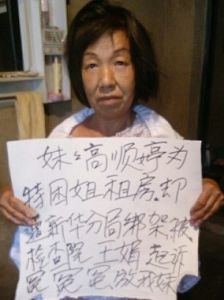 妹妹高顺婷为
特困姐租房却
遭新华分局绑架被
检查院王娟起诉
冤冤冤放我妹